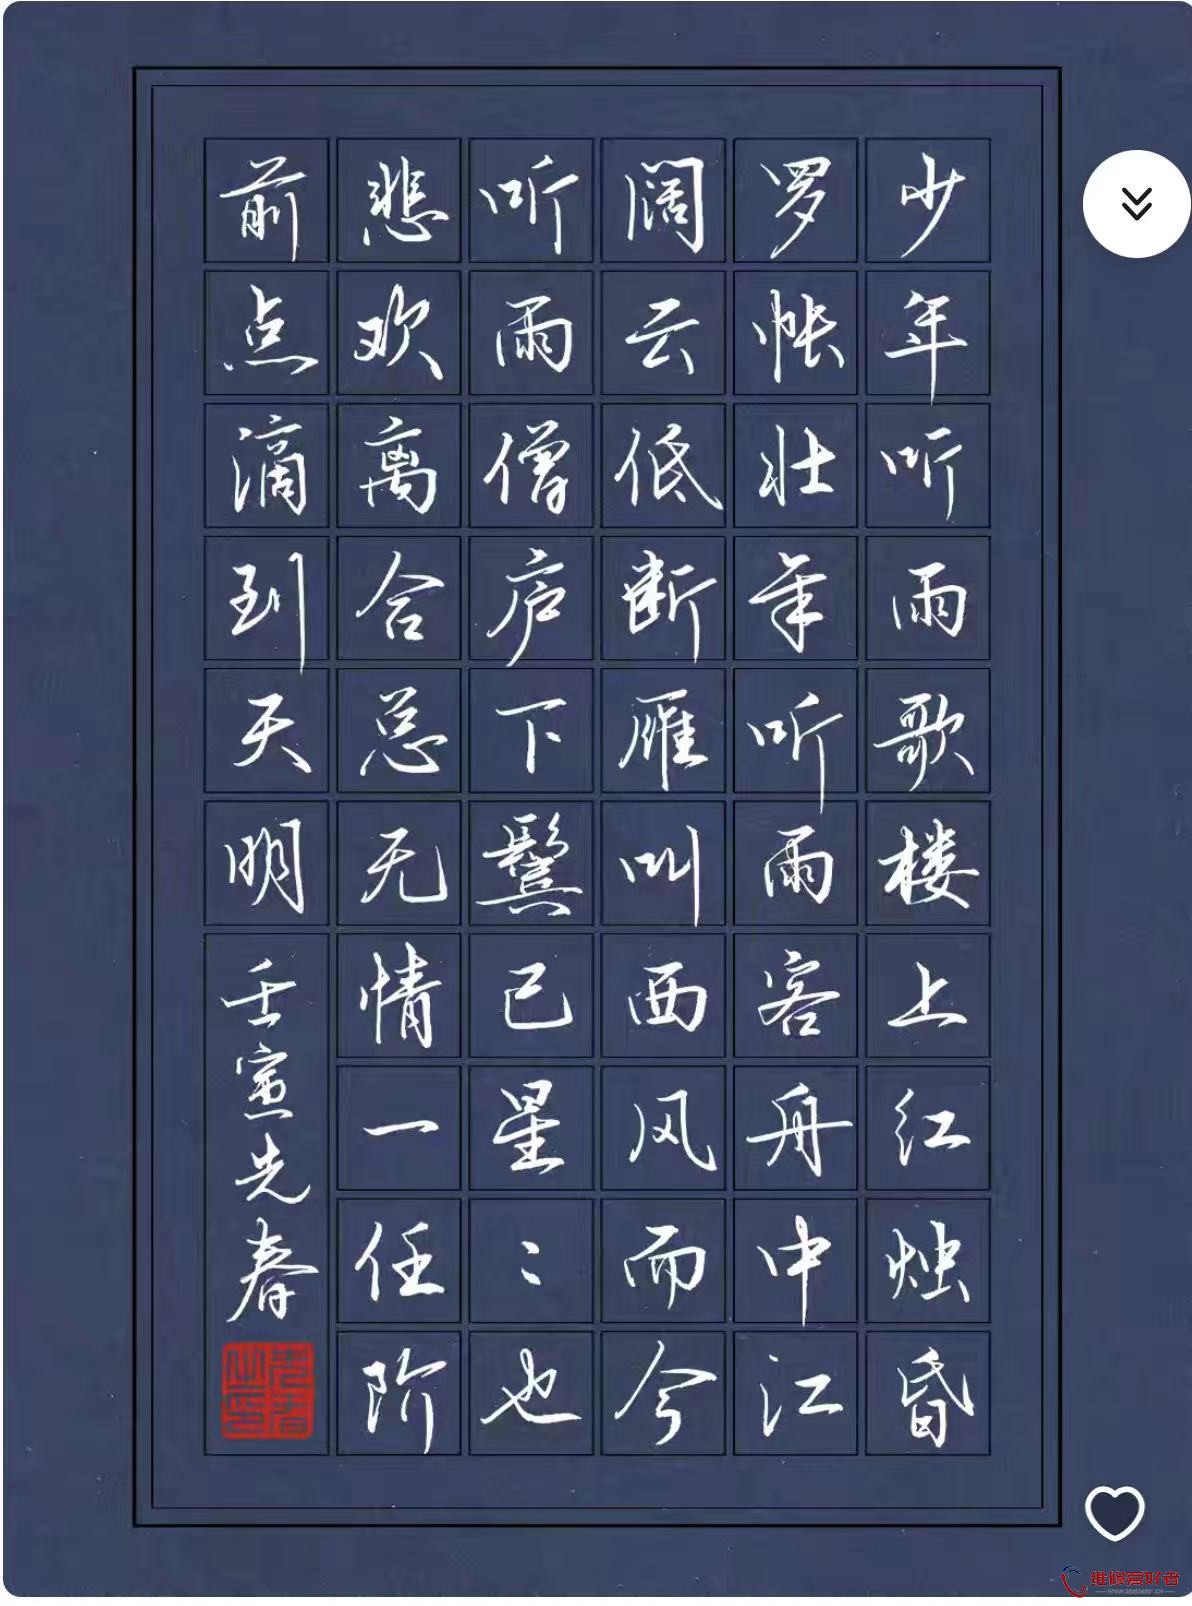 少年听雨歌楼上红烛昏
罗帐壮年听雨客舟中江
阔云低断雁叫西风而今
听雨僧庐下鬓已星〻也
悲欢离合总无情一任阶
前点滴到天明
壬寅先春
维修爱好者